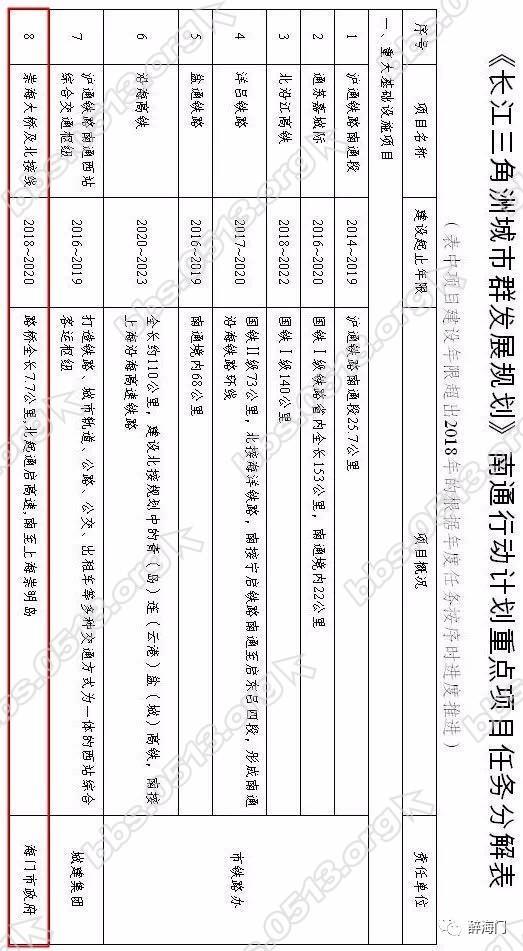 《长江三角洲城市群发展规划》南通行动计划重点项目任务分解表
（表中项目建设年限超出2018年的根据年度任务按序时进度推进）
序号 项目名称 建设起止年限 项目概况 责任单位
一、重大基础设施项目
1 沪通铁路南通段 2014~2019 沪通铁路南通段25.7公里
2 通苏嘉城际 2016~2020 国铁Ⅰ级铁路省内全长153公里，南通境内22公里
3 北沿江高铁 2018~2022 国铁Ⅰ级140公里
4 洋吕铁路 2017~2020 国铁Ⅱ级73公里，北接海洋铁路，南接宁启铁路南通至启东吕四段，形成南通
沿海铁路环线
市铁路办
5 盐通铁路 2016~2019 南通境内68公里
6 沿海高铁 2020~2023 全长约110公里，建设北接规划中的青（岛）连（云港）盐（城）高铁，南接
上海沿海高速铁路
7 沪通铁路南通西站
综合交通枢纽 2016~2019 打造铁路、城市轨道、公路、公交、出租车等多种交通方式为一体的西站综合
客运枢纽 城建集团
8 崇海大桥及北接线 2018~2020 路桥全长7.7公里,北起通启高速,南至上海崇明岛 海门市政府
bbs.0513.org
醉海门